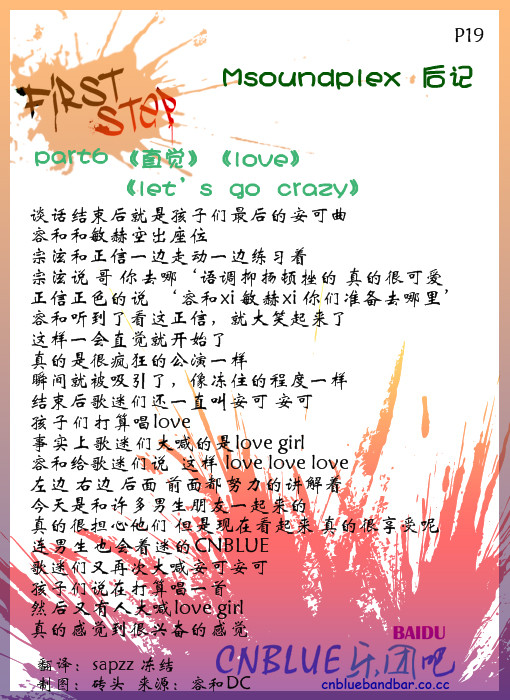 P19
FIRST STEP
Msoundplex 后记
part6 《直觉》《love》
《let's go crazy》
谈话结束后就是孩子们最后的安可曲
容和和敏赫空出座位
宗泫和正信一边走动一边练习着
宗泫说 哥 你去哪‘语调抑扬顿挫的 真的很可爱
正信正色的说 ‘容和xi 敏赫xi 你们准备去哪里’
容和听到了看这正信，就大笑起来了
这样一会直觉就开始了
真的是很疯狂的公演一样
瞬间就被吸引了，像冻住的程度一样
结束后歌迷们还一直叫安可 安可
孩子们打算唱love
事实上歌迷们大喊的是love girl
容和给歌迷们说 这样 love love love
左边 右边 后面 前面都努力的讲解着
今天是和许多男生朋友一起来的
真的很担心他们 但是现在看起来 真的很享受呢
连男生也会着迷的CNBLUE
歌迷们又再次大喊安可安可
孩子们说在打算唱一首
然后又有人大喊love girl
真的感觉到很兴奋的感觉
翻译：sapzz 冻结
制图：砖头 来源：容和DC
BAIDU
CNBLUE乐团吧
cnbluebandbar.co.cc